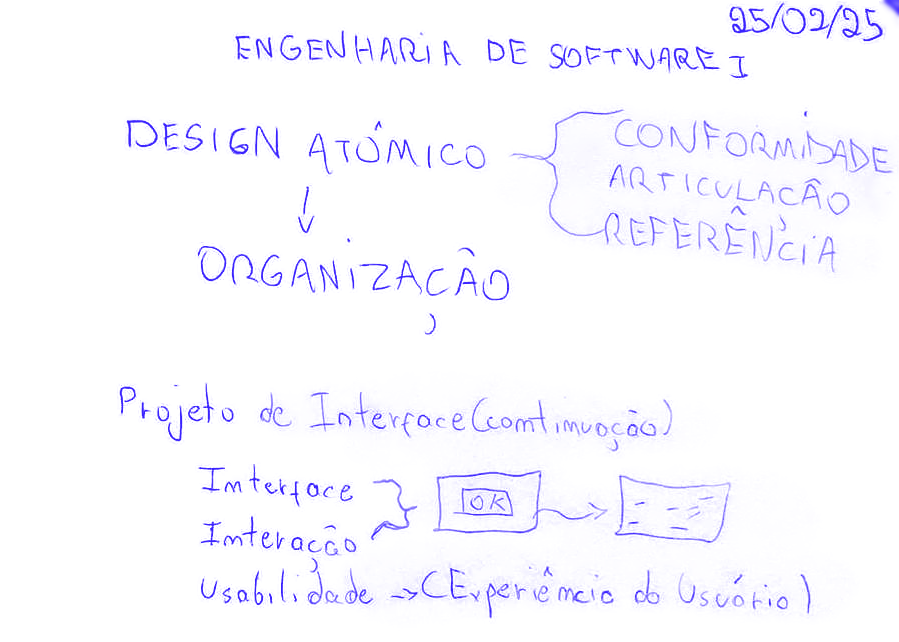 25/02/25
ENGENHARIA DE SOFTWARE I
DESIGN ATÔMICO
CONFORMIDADE
ARTICULAÇÃO
REFERÊNCIA
↓
ORGANIZAÇÃO
Projeto de Interface (continuação)
Interface
Interação
OK
Usabilidade → (Experiência do Usuário)